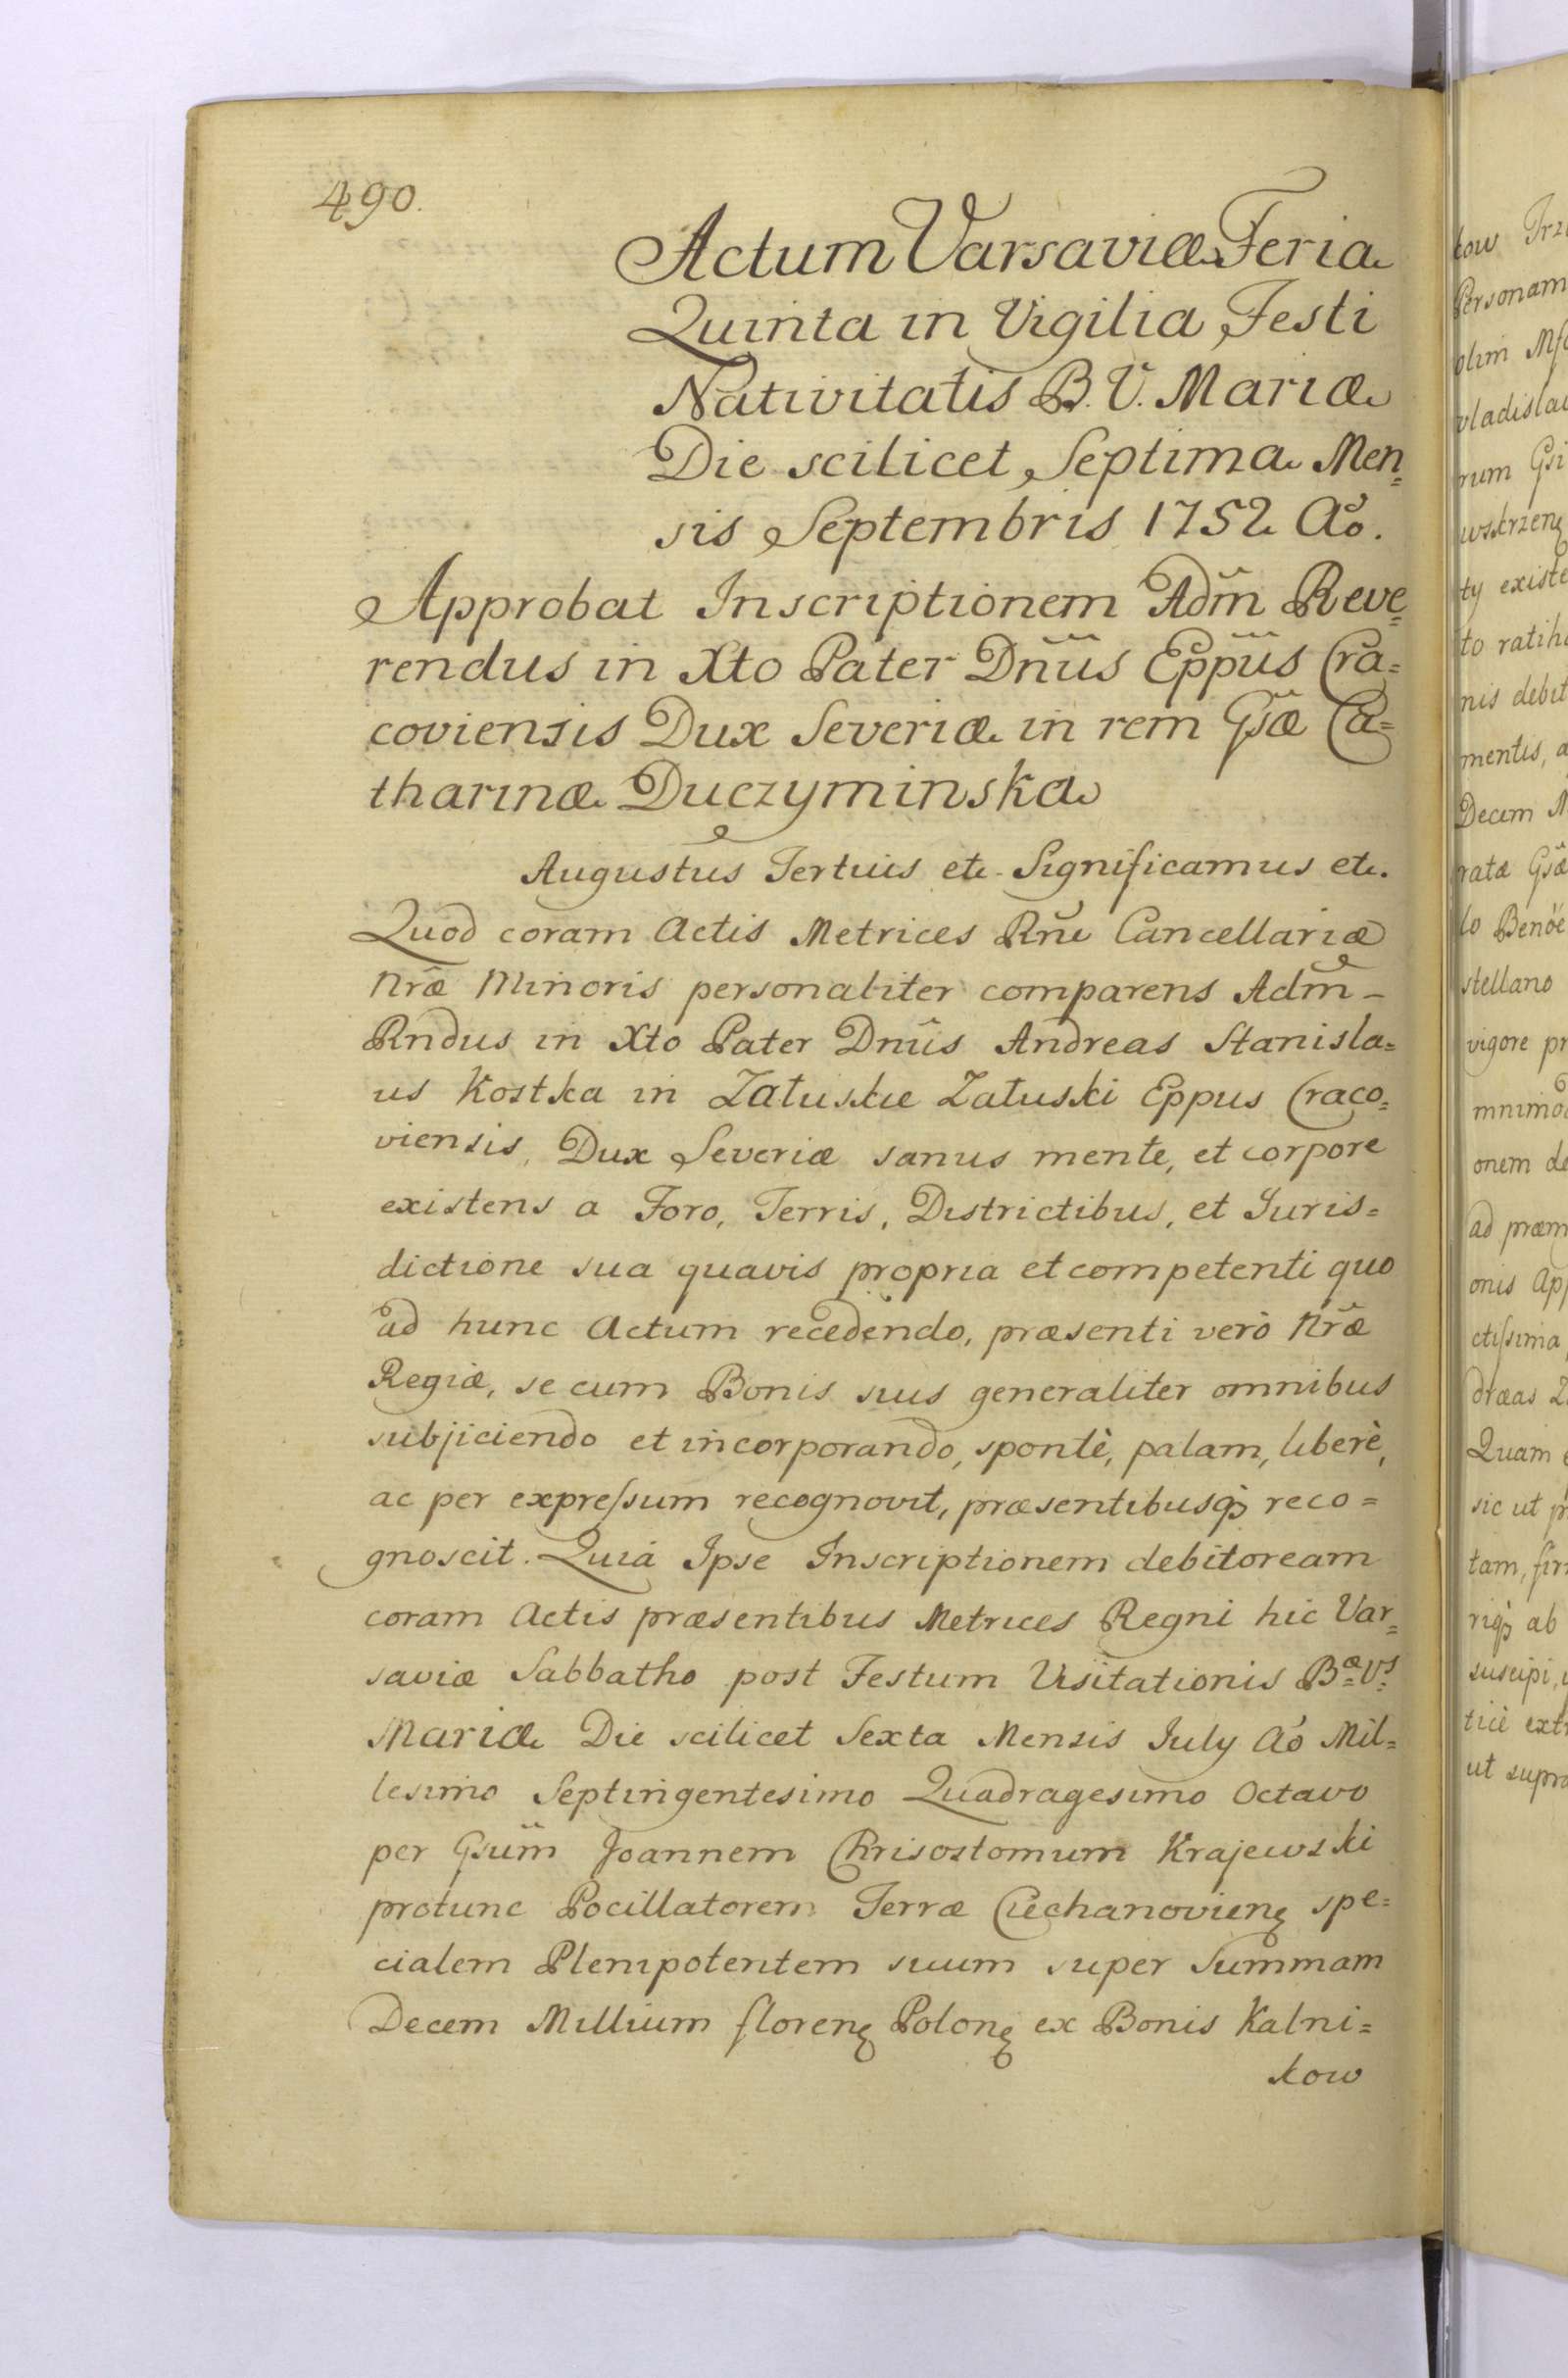 490.
Actum Varsaviæ Feria
Quinta in Vigilia Festi
Nativitatis B. V. Mariæ
Die scilicet Septima Men=
sis Septembris 1752 Ao.
Approbat Inscriptionem Adm̃ Reve=
rendus in Xto Pater Dnũs Eppũs Cra=
coviensis Dux Severiæ in rem Gsæ̃ Ca=
tharinæ Duczyminska
Augustus Tertius etc. Significamus etc.
Quod coram Actis Metrices Rñi Cancellariæ
Nræ̃ Minoris personaliter comparens Adm̃-
Rndus in Xto Pater Dnũs Andreas Stanisla=
us Kostka in Załuskie Załuski Eppus Craco=
viensis, Dux Severiæ sanus mente, et corpore
existens a Foro, Terris, Districtibus, et Juris=
dictione sua quavis propria et competenti quo
ad hunc Actum recedendo, præsenti verò Nræ̃
Regiæ, se cum Bonis suis generaliter omnibus
subjiciendo et incorporando, spontè, palam, liberè,
ac per expreſsum recognovit, præsentibusq; reco=
gnoscit. Quia Ipse Inscriptionem debitoream
coram Actis præsentibus Metrices Regni hic Var=
saviæ Sabbatho post Festum Visitationis Bæ Vs
Mariæ Die scilicet Sexta Mensis July Ao Mil=
lesimo Septingentesimo Quadragesimo Octavo
per Gsum̃ Joannem Chrisostomum Krajewski
protunc Pocillatorem Terræ Ciechanovienȩ spe=
cialem Plenipotentem suum super Summam
Decem Millium florenȩ Polonȩ ex Bonis Kalni=
kow
kow
Personam
olim
vladisla
rum
ty existe
to ratih
nis debit
mentis, a
Decem M
ratæ Gsæ̃
lo
stellano
vigore pr
mnimo
onem de
ad præm
onis App
ctiſsima,
Quam
sic ut p
tam, fir
riq; ab
suscipi,
tice extr
ut supra